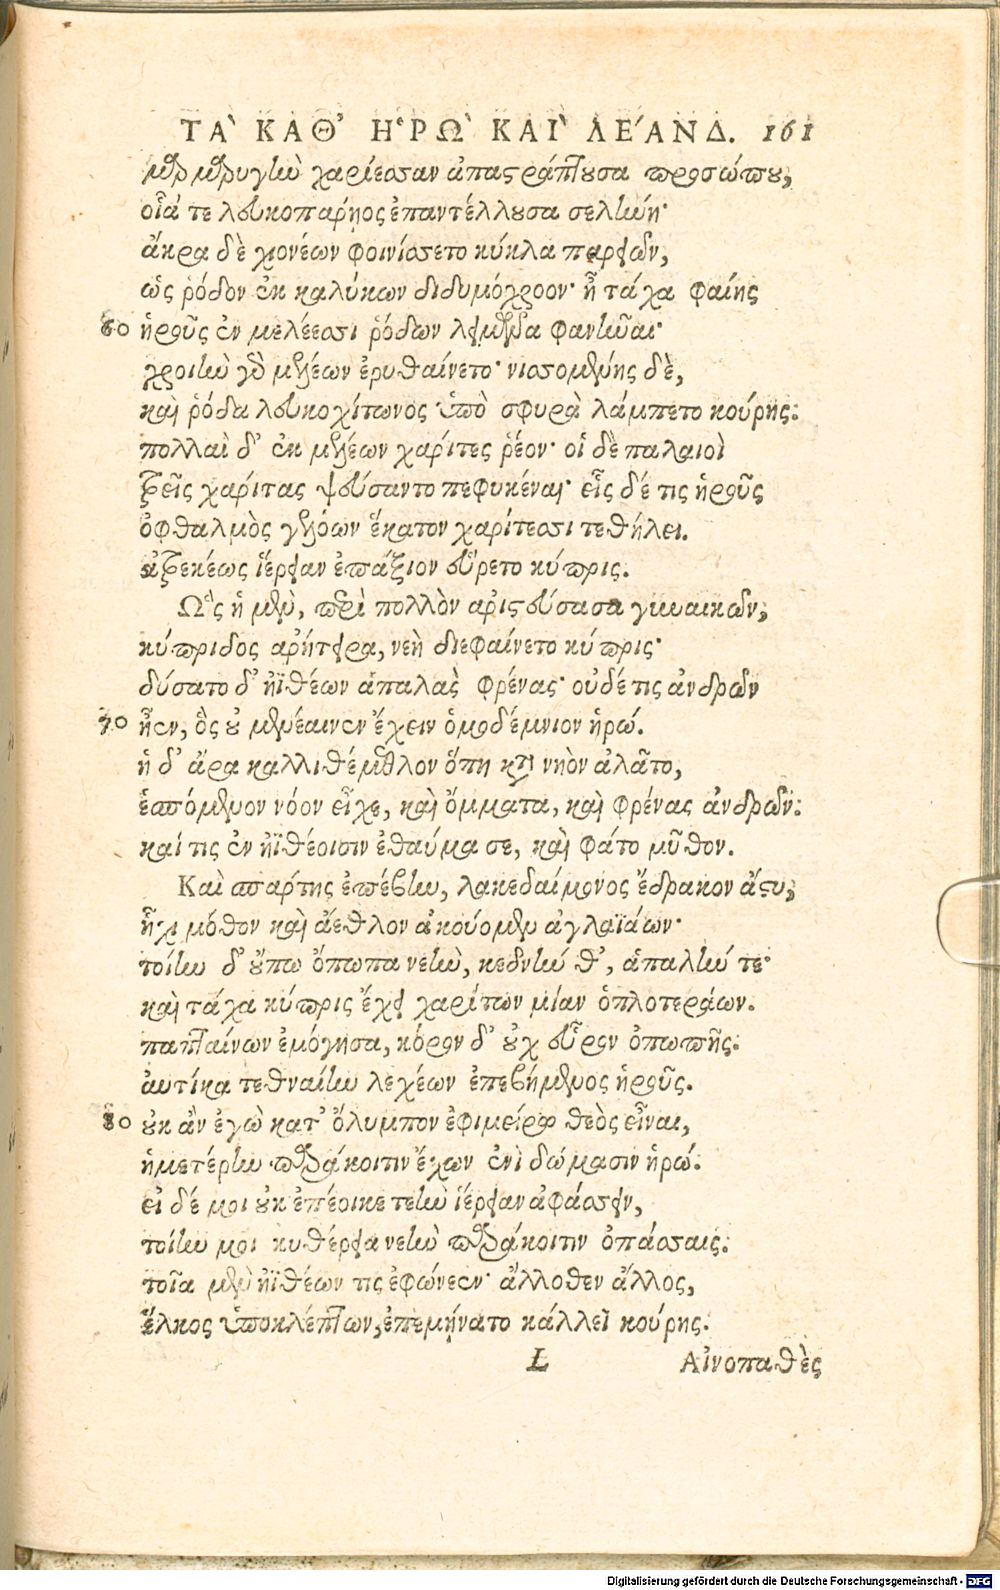 ΤᾺ ΚΑΘ' Ἡ̔ΡῺ ΚΑῚ ΛΈΑΝΔ. 161
μαρμαρυγὴν χαρίεσσαν ἀπαστράπτουσα προσώπου,
οἷά τε λευκοπάρῃος ἐπαντέλλουσα σελήνη·
ἄκρα δὲ χιονέων φοινίσσετο κύκλα παρειῶν,
ὡς ῥόδον ἐκ καλύκων διδυμόχροον· ἦ τάχα φαίης
60 ἡροῦς ἐν μελέεσσι ῥόδων λειμῶνα φανῆναι·
χροιὴν γὰρ μελέων ἐρυθαίνετο· νισσομένης δὲ,
καὶ ῥόδα λευκοχίτωνος ὑπὸ σφυρὰ λάμπετο κούρης·
πολλαὶ δ' ἐκ μελέων χάριτες ῥέον· οἱ δὲ παλαιοὶ
τρεῖς χάριτας ψεύσαντο πεφυκέναι· εἷς δέ τις ἡροῦς
ὀφθαλμὸς γελόων ἕκατον χαρίτεσσι τεθήλει.
ἀτρεκέως ἱέρειαν ἐπάξιον εὕρετο κύπρις.
Ὣς ἡ μὲν, περὶ πολλὸν ἀριστεύσασα γυναικῶν,
κύπριδος ἀρήτειρα, νεὴ διεφαίνετο κύπρις·
δύσατο δ' ἠϊθέων ἁπαλὰς φρένας· οὐδέ τις ἀνδρῶν
70 ἦεν, ὃς οὐ μενέαινεν ἔχειν ὁμοδέμνιον ἡρώ.
ἡ δ' ἄρα καλλιθέμεθλον ὅπη κατὰ νηὸν ἀλᾶτο,
ἑσπόμενον νόον εἶχε, καὶ ὄμματα, καὶ φρένας ἀνδρῶν·
καί τις ἐν ἠϊθέοισιν ἐθαύμασε, καὶ φάτο μῦθον.
Καὶ σπάρτης ἐπέβην, λακεδαίμονος ἔδρακον ἄστυ,
ἧχι μόθον καὶ ἄεθλον ἀκούομεν ἀγλαϊάων·
τοίην δ' οὔπω ὄπωπα νεὴν, κεδνήν θ', ἁπαλήν τε·
καὶ τάχα κύπρις ἔχει χαρίτων μίαν ὁπλοτεράων.
παπταίνων ἐμόγησα, κόρον δ' οὐχ εὗρον ὀπωπῆς·
αὐτίκα τεθναίην λεχέων ἐπεβήμενος ἡροῦς.
80 οὐκ ἂν ἐγὼ κατ' ὄλυμπον ἐφιμείρω θεὸς εἶναι,
ἡμετέρην παράκοιτιν ἔχων ἐνὶ δώμασιν ἡρώ·
εἰ δέ μοι οὐκ ἐπέοικε τεὴν ἱέρειαν ἀφάσσειν,
τοίην μοι κυθέρεια νεὴν παράκοιτιν ὀπάσσαις·
τοῖα μὲν ἠϊθέων τις ἐφώνεεν· ἄλλοθεν ἄλλος,
ἕλκος ὑποκλέπτων, ἐπεμήνατο κάλλεϊ κούρης.
L Αἰνοπαθὲς
Digitalisierung gefördert durch die Deutsche Forschungsgemeinschaft - DFG